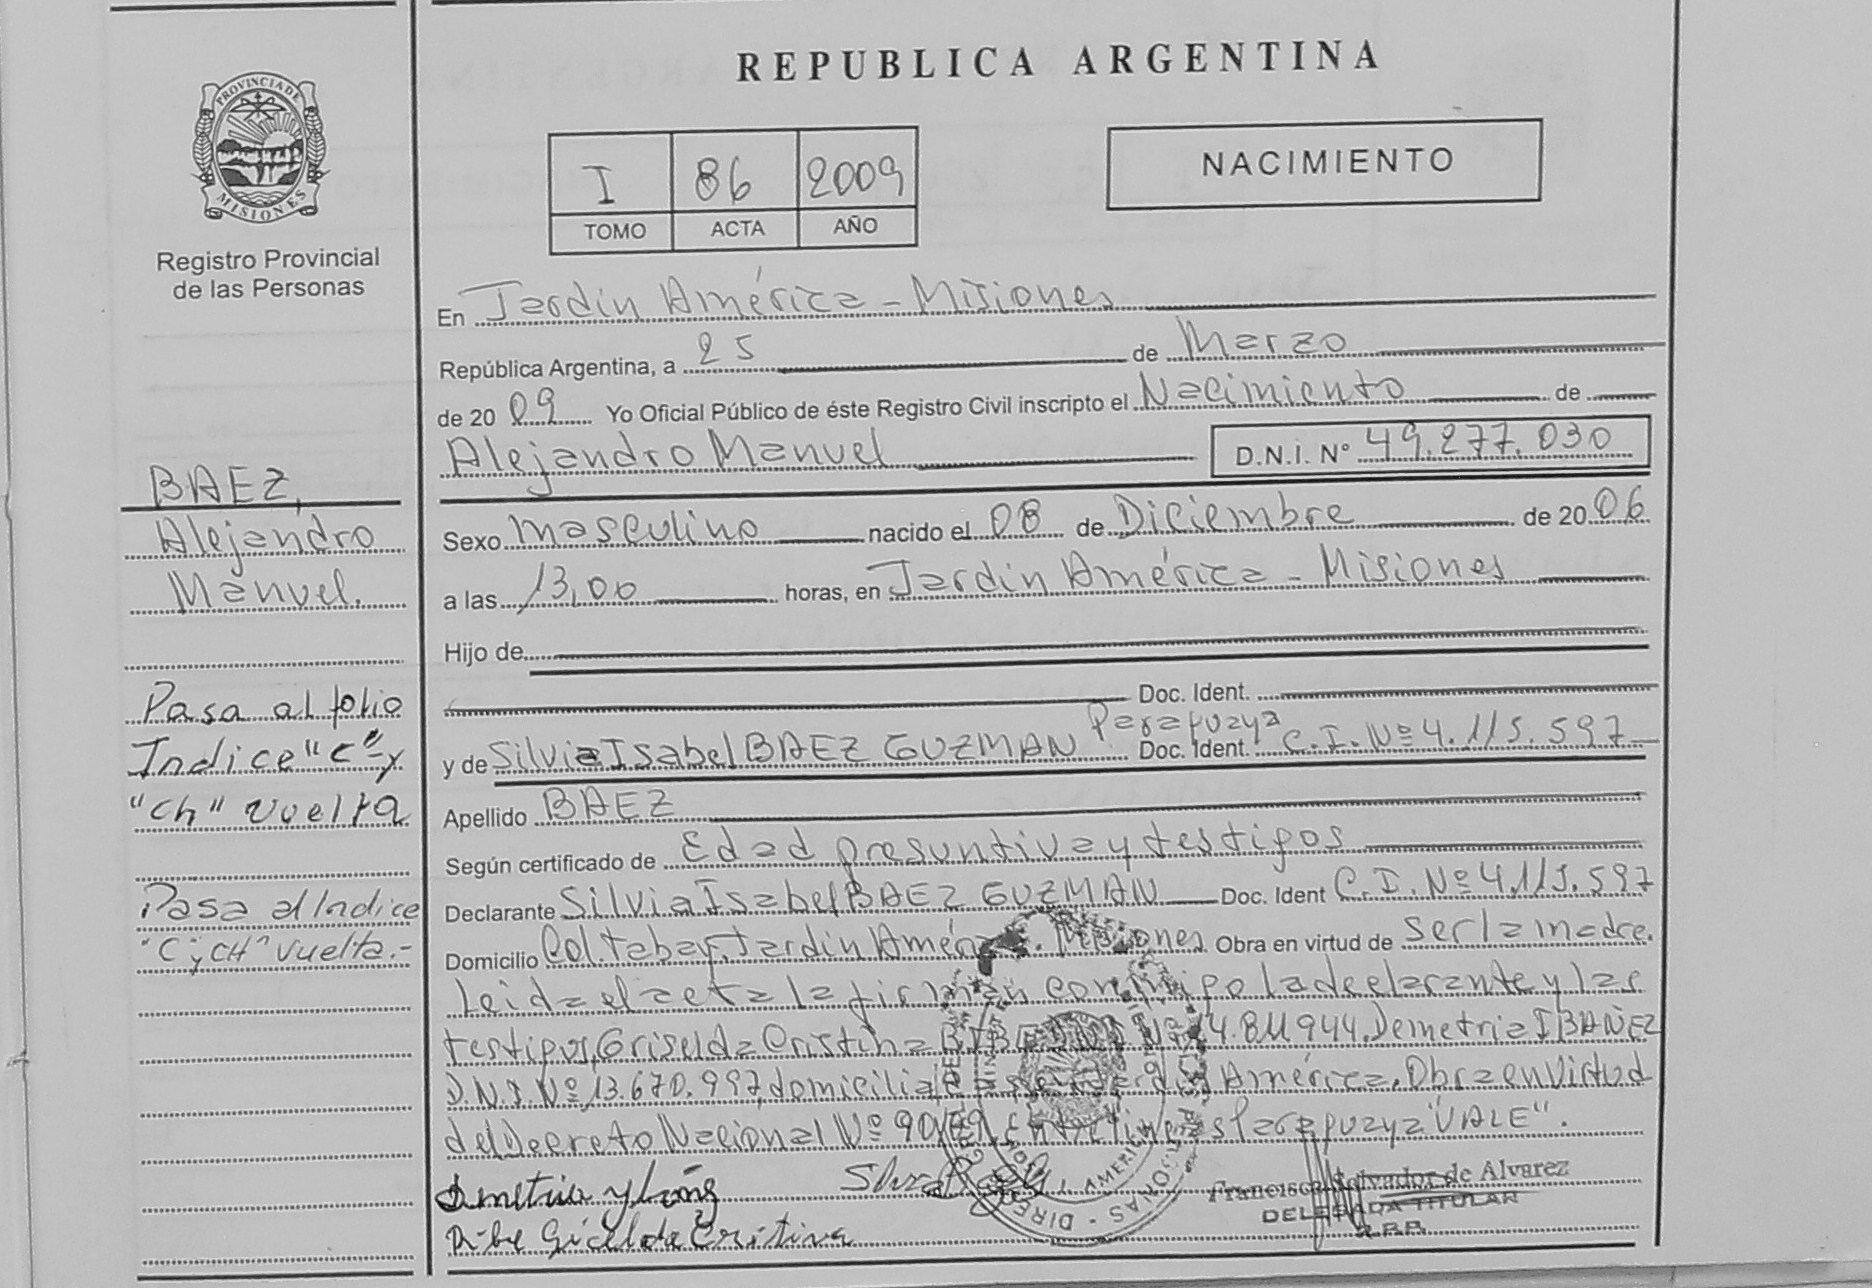 REPUBLICA ARGENTINA
PROVINCIA DE
MISIONES
Registro Provincial
de las Personas
I 86 2009
TOMO ACTA AÑO
NACIMIENTO
En Jardín América - Misiones
República Argentina, a 25 de Marzo
de 2009 Yo Oficial Público de éste Registro Civil inscripto el Nacimiento de
Alejandro Manuel D.N.I. Nº 49.277.030
Sexo masculino nacido el 08 de Diciembre de 2006
a las 13,00 horas, en Jardín América - Misiones
Hijo de
Doc. Ident.
Paraguaya
y de Silvia Isabel BAEZ GUZMAN Doc. Ident. C.I. Nº 4.115.597
Apellido BAEZ
Según certificado de Edad presuntiva y testigos
Declarante Silvia Isabel BAEZ GUZMAN Doc. Ident C.I. Nº 4.115.597
Domicilio Col. Tabay, Jardín América. Misiones Obra en virtud de ser la madre.
Leida el acta la firman conmigo la declarante y las
testigos, Griselda Cristina Nº 14.811944, Demetria IBAÑEZ
D.N.I. Nº 13.670.997, domiciliadas en Jardín América. Obra en Virtud
del Decreto Nacional Nº Entre lineas Paraguaya "VALE".
Francisca Salvador de Alvarez
DELEGADA TITULAR
R.P.P.
Cristina
BAEZ,
Alejandro
Manuel.
Pasa al folio
Indice "C" y
"Ch" vuelta
Pasa al Indice
"C y CH" Vuelta.-